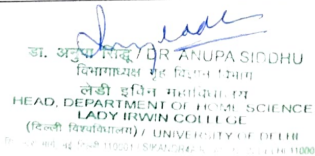 डा. अनुपा सिद्धू / DR ANUPA SIDDHU
विभागाध्यक्ष गृह विज्ञान विभाग
लेडी इर्विन महाविद्यालय
HEAD, DEPARTMENT OF HOME SCIENCE
LADY IRWIN COLLEGE
(दिल्ली विश्वविद्यालय) / UNIVERSITY OF DELHI
नई दिल्ली 110001 / SIKANDRA DELHI 11000